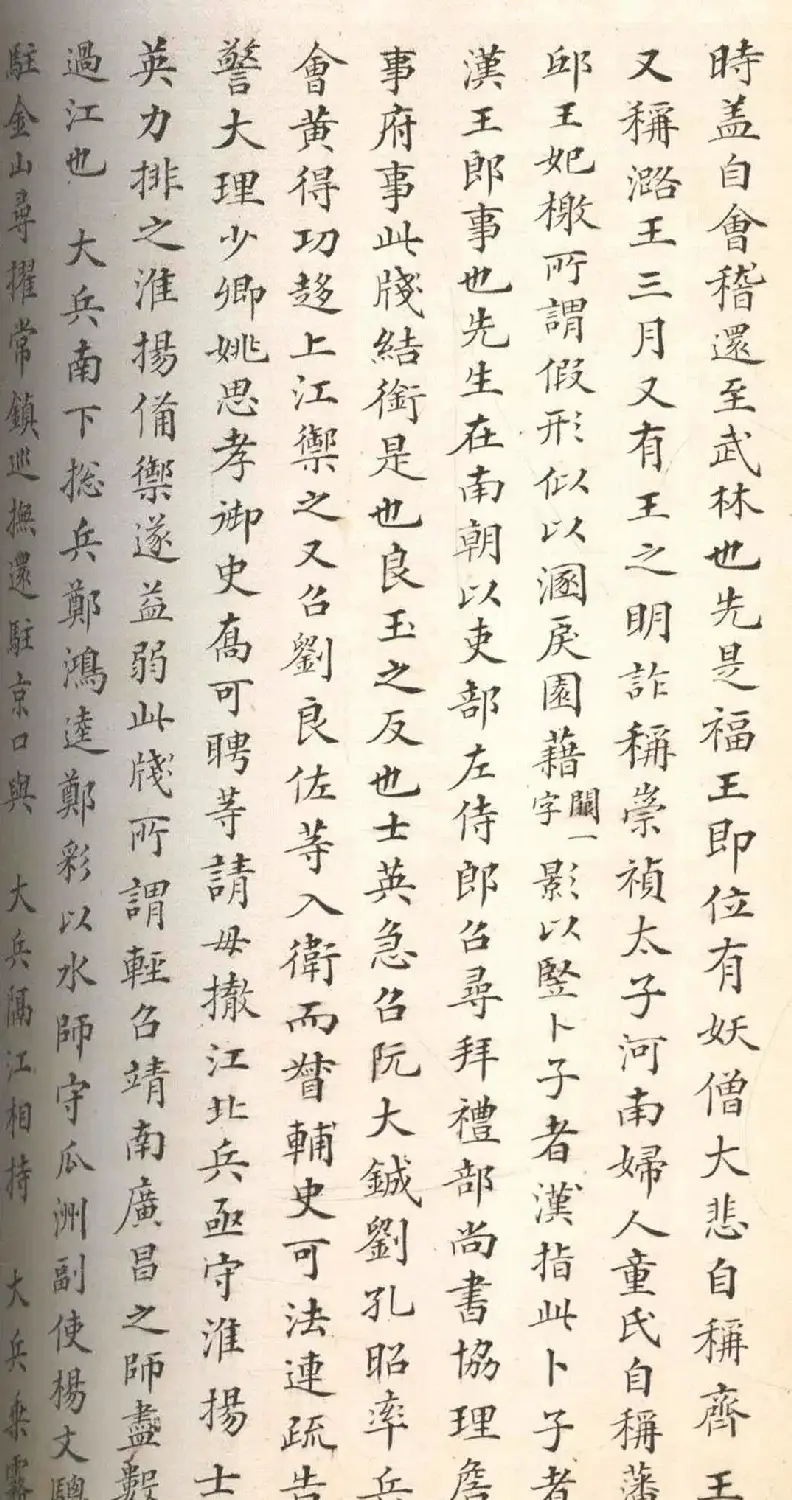 時盖自會稽還至武林也先是福王即位有妖僧大悲自稱齊王
又稱潞王三月又有王之明詐稱崇禎太子河南婦人童氏自稱藩
邸王妃檄所謂假形似以溷戾園藉闕一字影以豎卜子者漢指此卜子者
漢王郎事也先生在南朝以吏部左侍郎召尋拜禮部尚書協理詹
事府事此牋結銜是也良玉之反也士英急召阮大鋮劉孔昭率兵
會黄得功趍上江禦之又召劉良佐等入衛而督輔史可法連疏告
警大理少卿姚思孝御史喬可聘等請毋撤江北兵亟守淮揚士
英力排之淮揚備禦遂益弱此牋所謂輕召靖南廣昌之師盡
過江也 大兵南下捴兵鄭鴻逵鄭彩以水師守瓜洲副使楊文驄
駐金山尋擢常鎮巡撫還駐京口與 大兵隔江相持 大兵乘霧